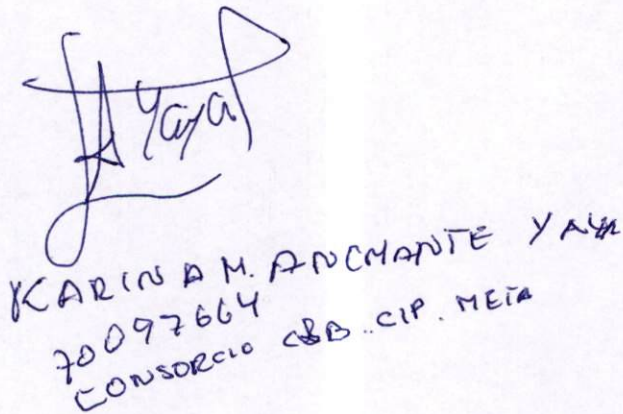 Yaya
KARINA M. ANCHANTE YAYA
70097664
CONSORCIO C&B. CIP. META